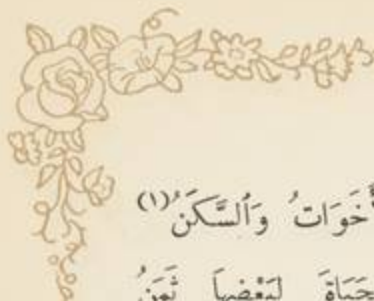 أَخَوَاتُ وَٱلسَّكَنُ(١)
حَيَاةَ لِبَعْضِهَا ثَمَنُ